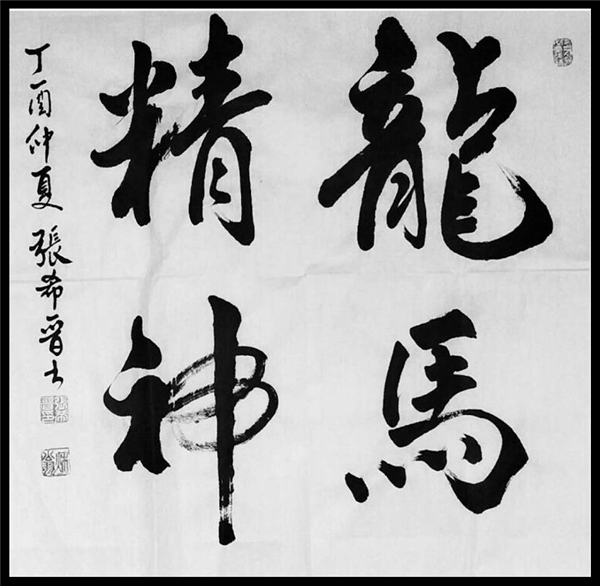 龍馬
精神
丁酉仲夏 張希晉書